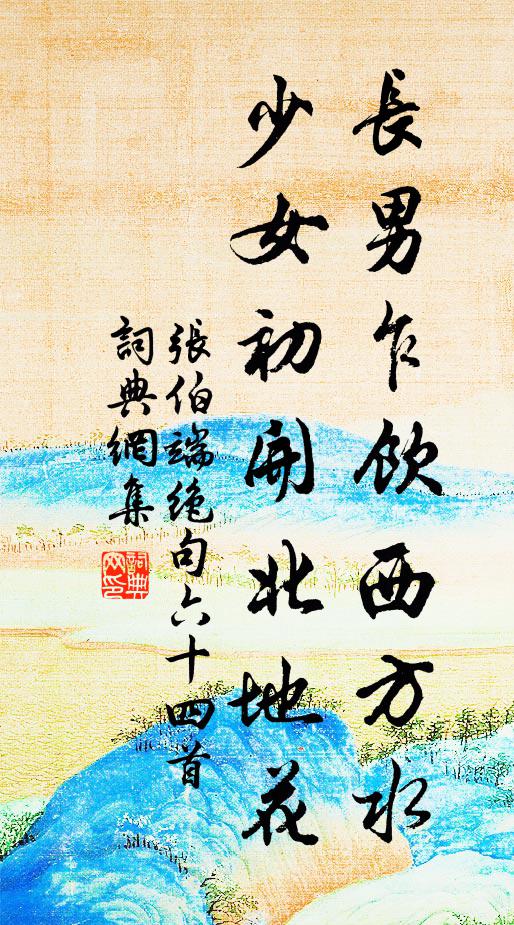 長男乍飲西方水
少女初開北地花
張伯端絶句六十四首
詞典網集
詞典
网印